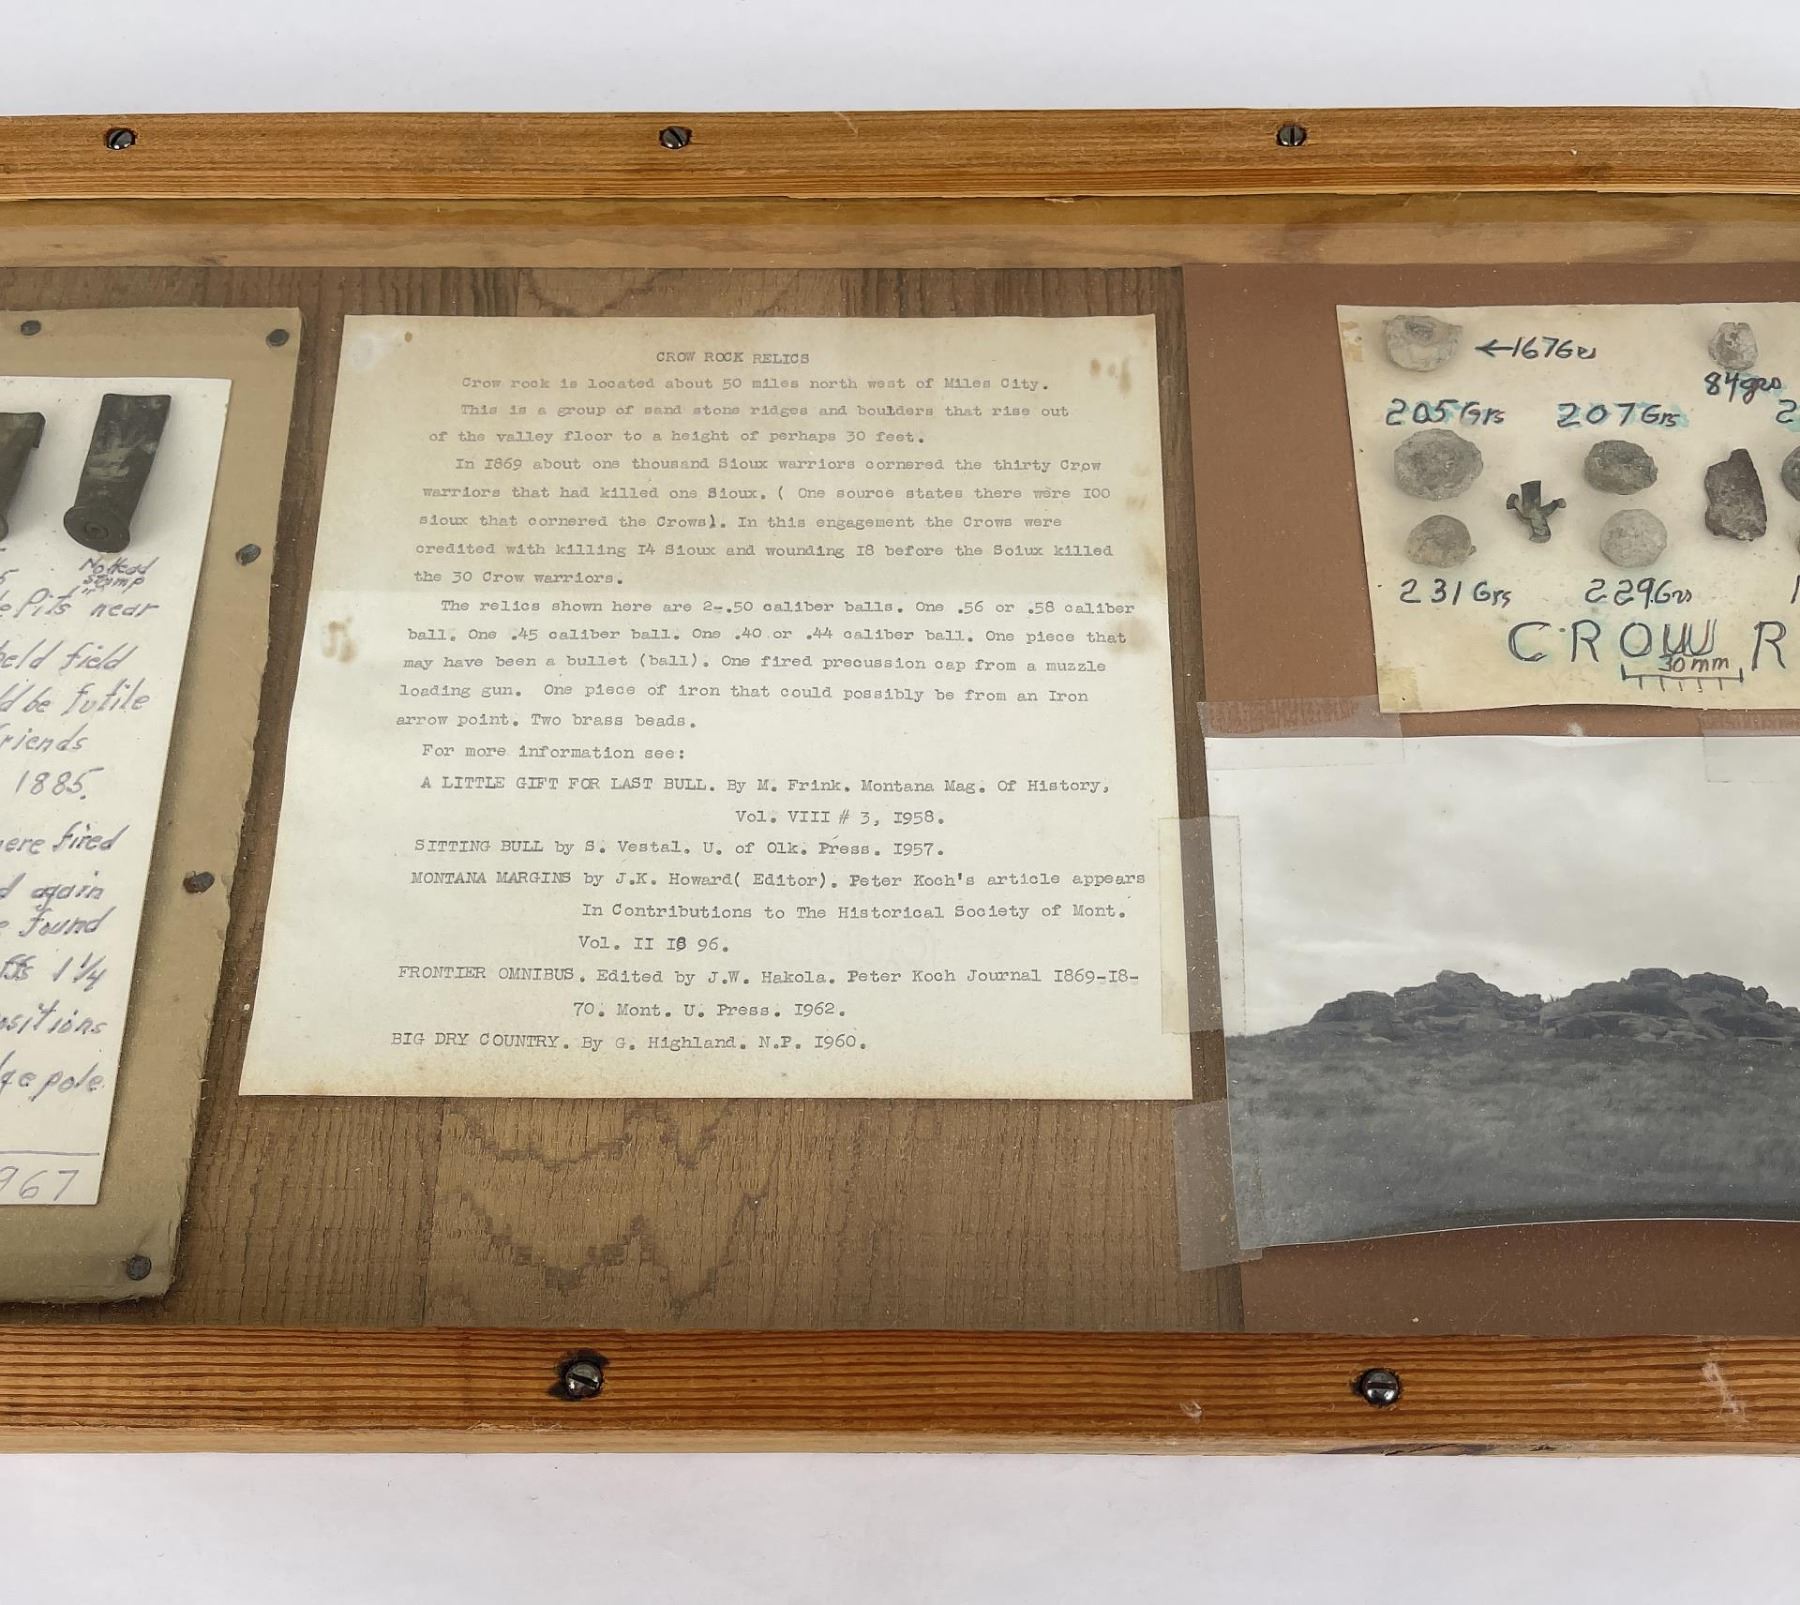 No Head
stamp
Pits" near
held field
be futile
friends
1885.
were fired
again
found
1 1/4
positions
pole
967
CROW ROCK RELICS
Crow rock is located about 50 miles north west of Miles City.
This is a group of sand stone ridges and boulders that rise out
of the valley floor to a height of perhaps 30 feet.
In I869 about one thousand Sioux warriors cornered the thirty Crow
warriors that had killed one Sioux. ( One source states there were I00
sioux that cornered the Crows). In this engagement the Crows were
credited with killing I4 Sioux and wounding I8 before the Soiux killed
the 30 Crow warriors.
The relics shown here are 2-.50 caliber balls. One .56 or .58 caliber
ball. One .45 caliber ball. One .40 or .44 caliber ball. One piece that
may have been a bullet (ball). One fired precussion cap from a muzzle
loading gun. One piece of iron that could possibly be from an Iron
arrow point. Two brass beads.
For more information see:
A LITTLE GIFT FOR LAST BULL. By M. Frink. Montana Mag. Of History,
Vol. VIII # 3, I958.
SITTING BULL by S. Vestal. U. of Olk. Press. I957.
MONTANA MARGINS by J.K. Howard( Editor). Peter Koch's article appears
In Contributions to The Historical Society of Mont.
Vol. II I8 96.
FRONTIER OMNIBUS. Edited by J.W. Hakola. Peter Koch Journal I869-I8-
70. Mont. U. Press. I962.
BIG DRY COUNTRY. By G. Highland. N.P. I960.
←167Grs
84grs
205Grs 207Grs 2
231Grs 229Grs 1
CROW R
30mm